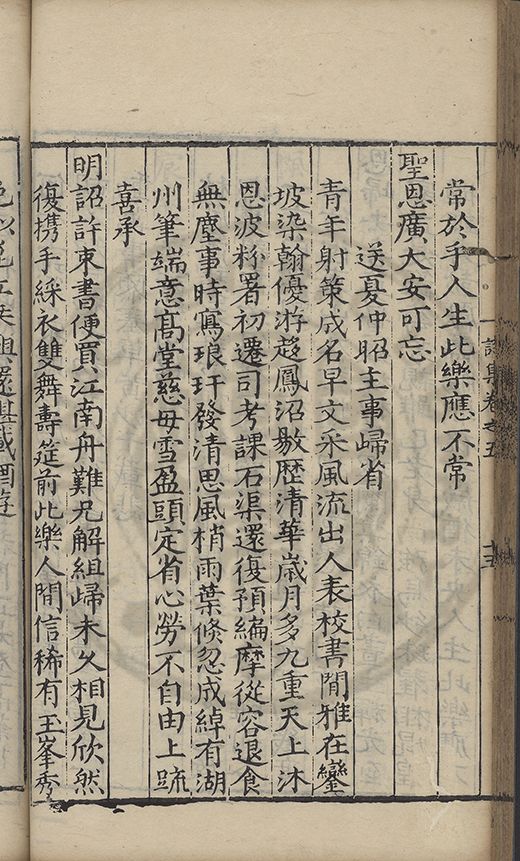 常於乎人生此樂應不常
聖恩廣大安可忘
送夏仲昭主事歸省
青年射策成名早文采風流出人表校書閒雅在鑾
坡染翰優游趍鳳沼敭歷清華歲月多九重天上沐
恩波粉署初遷司考課石渠還復預編摩從容退食
無塵事時寫琅玕發清思風梢雨葉倐忽成綽有湖
州筆端意高堂慈母雪盈頭定省心勞不自由上䟽
喜承
明詔許束書便買江南舟難兄解組歸未久相見欣然
復携手綵衣雙舞壽筵前此樂人間信稀有玉峯秀
詩集卷之五